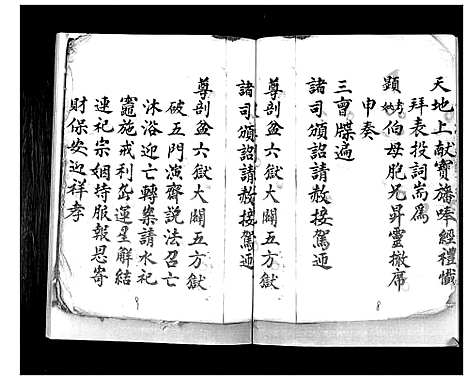 天地上献寳旛唪經禮懺
拜表投詞嵩為
顕妣伯母胞兄昇靈撤席
申奏
三會牒遍
諸司頒詔請赦接駕逥
尊剖盆六獄大闢五方獄
諸司頒詔請赦接駕逥
尊剖盆六獄大闢五方獄
破五門演齋説法召亡
沐浴迎亡轉案請水祀
竈施戒利𭁈運星觧結
連祀宗姻持服報恩寄
財保安迎祥孝
8
8